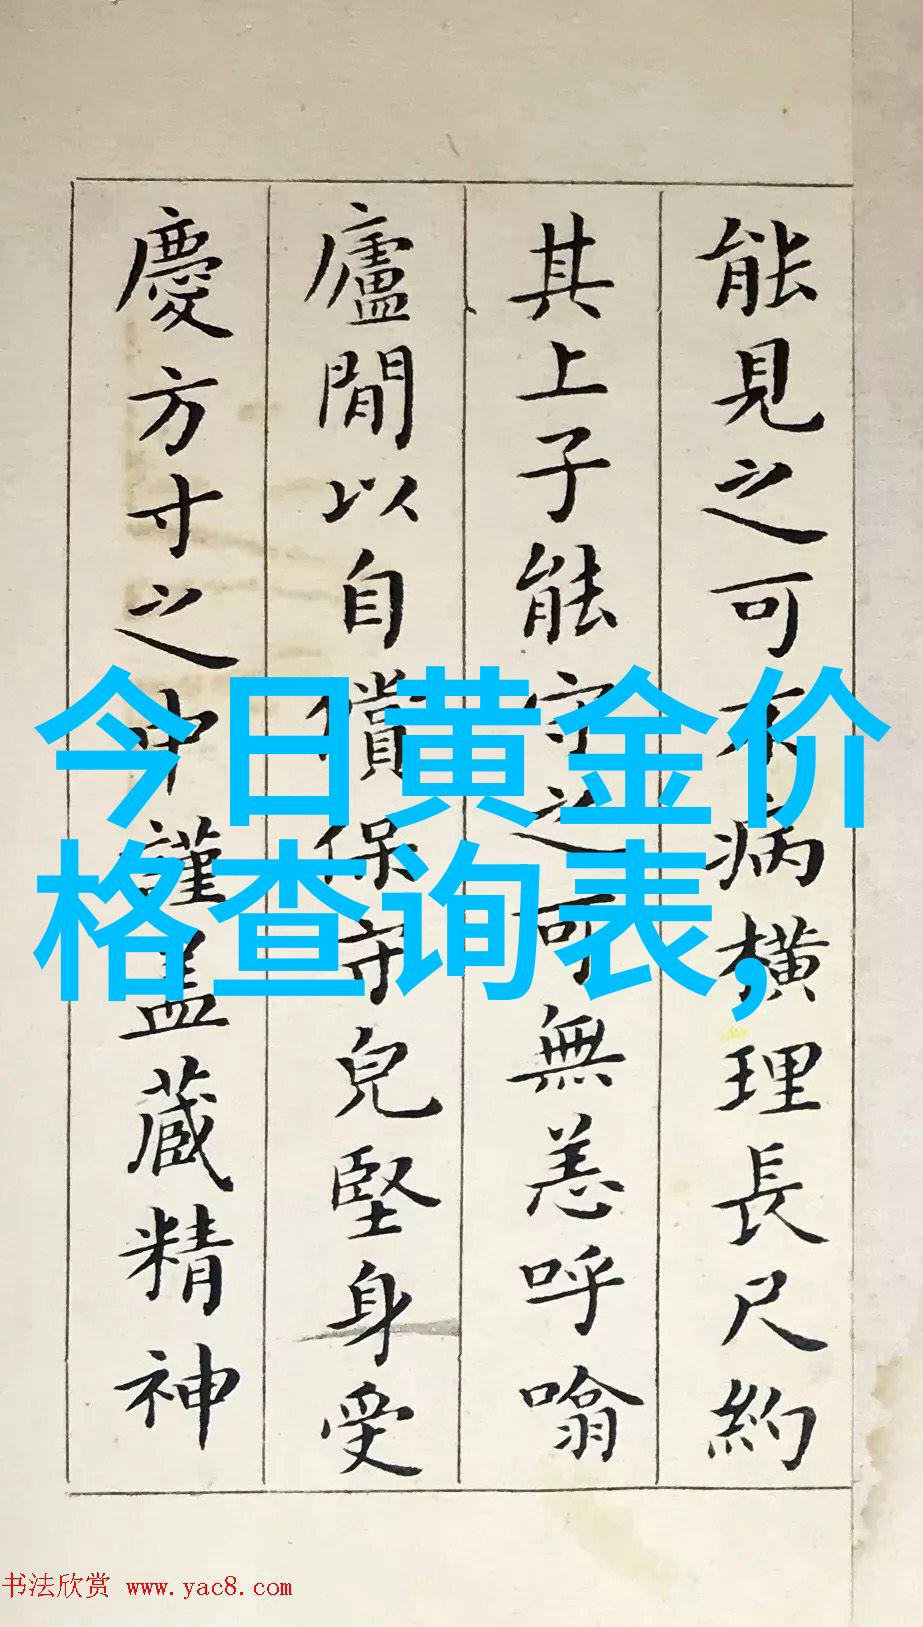 能見之可不病橫理長尺約
其上子能守之可無恙呼噏
廬間以自償保守兒堅身受
慶方寸之中謹盖蔵精神
今日黄金价
格查询表,
书法欣赏 www.yac8.com